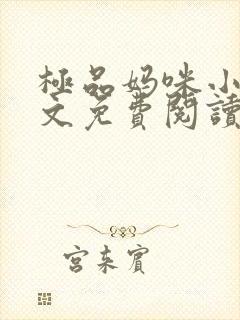 極品妈咪小
文免費閱讀
宮東賓